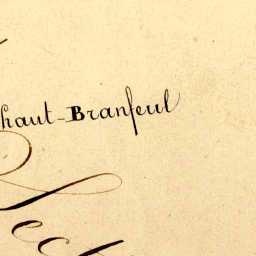 haut-Branfeul
Sec